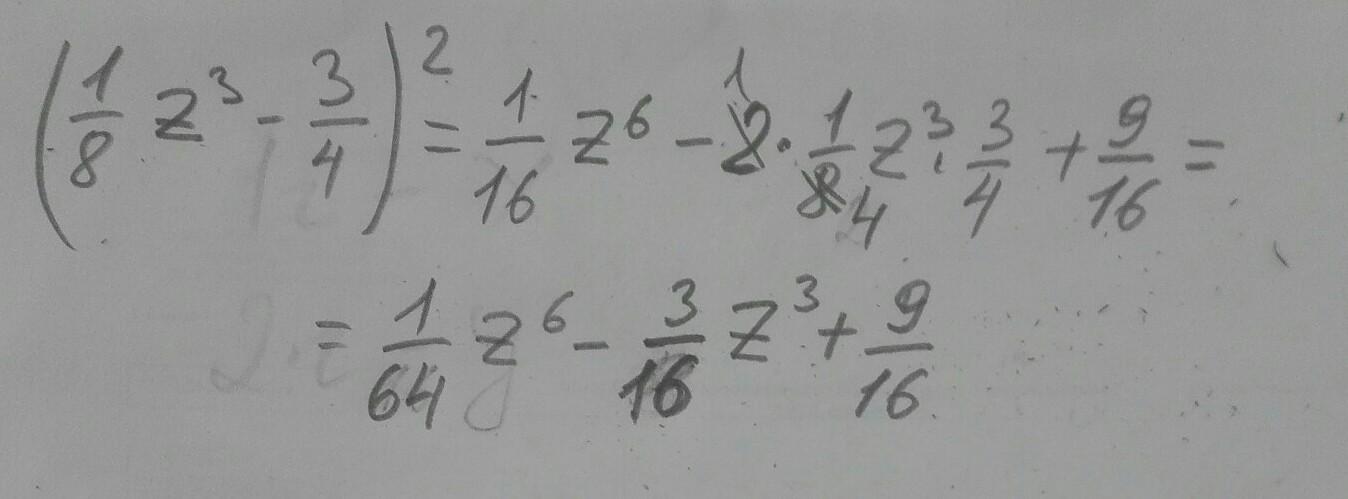 (1/8 z³ - 3/4)² = 1/16 z⁶ - 2̶ 1 · 1/8̶ 4 z³ · 3/4 + 9/16 =
= 1/64 z⁶ - 3/16 z³ + 9/16